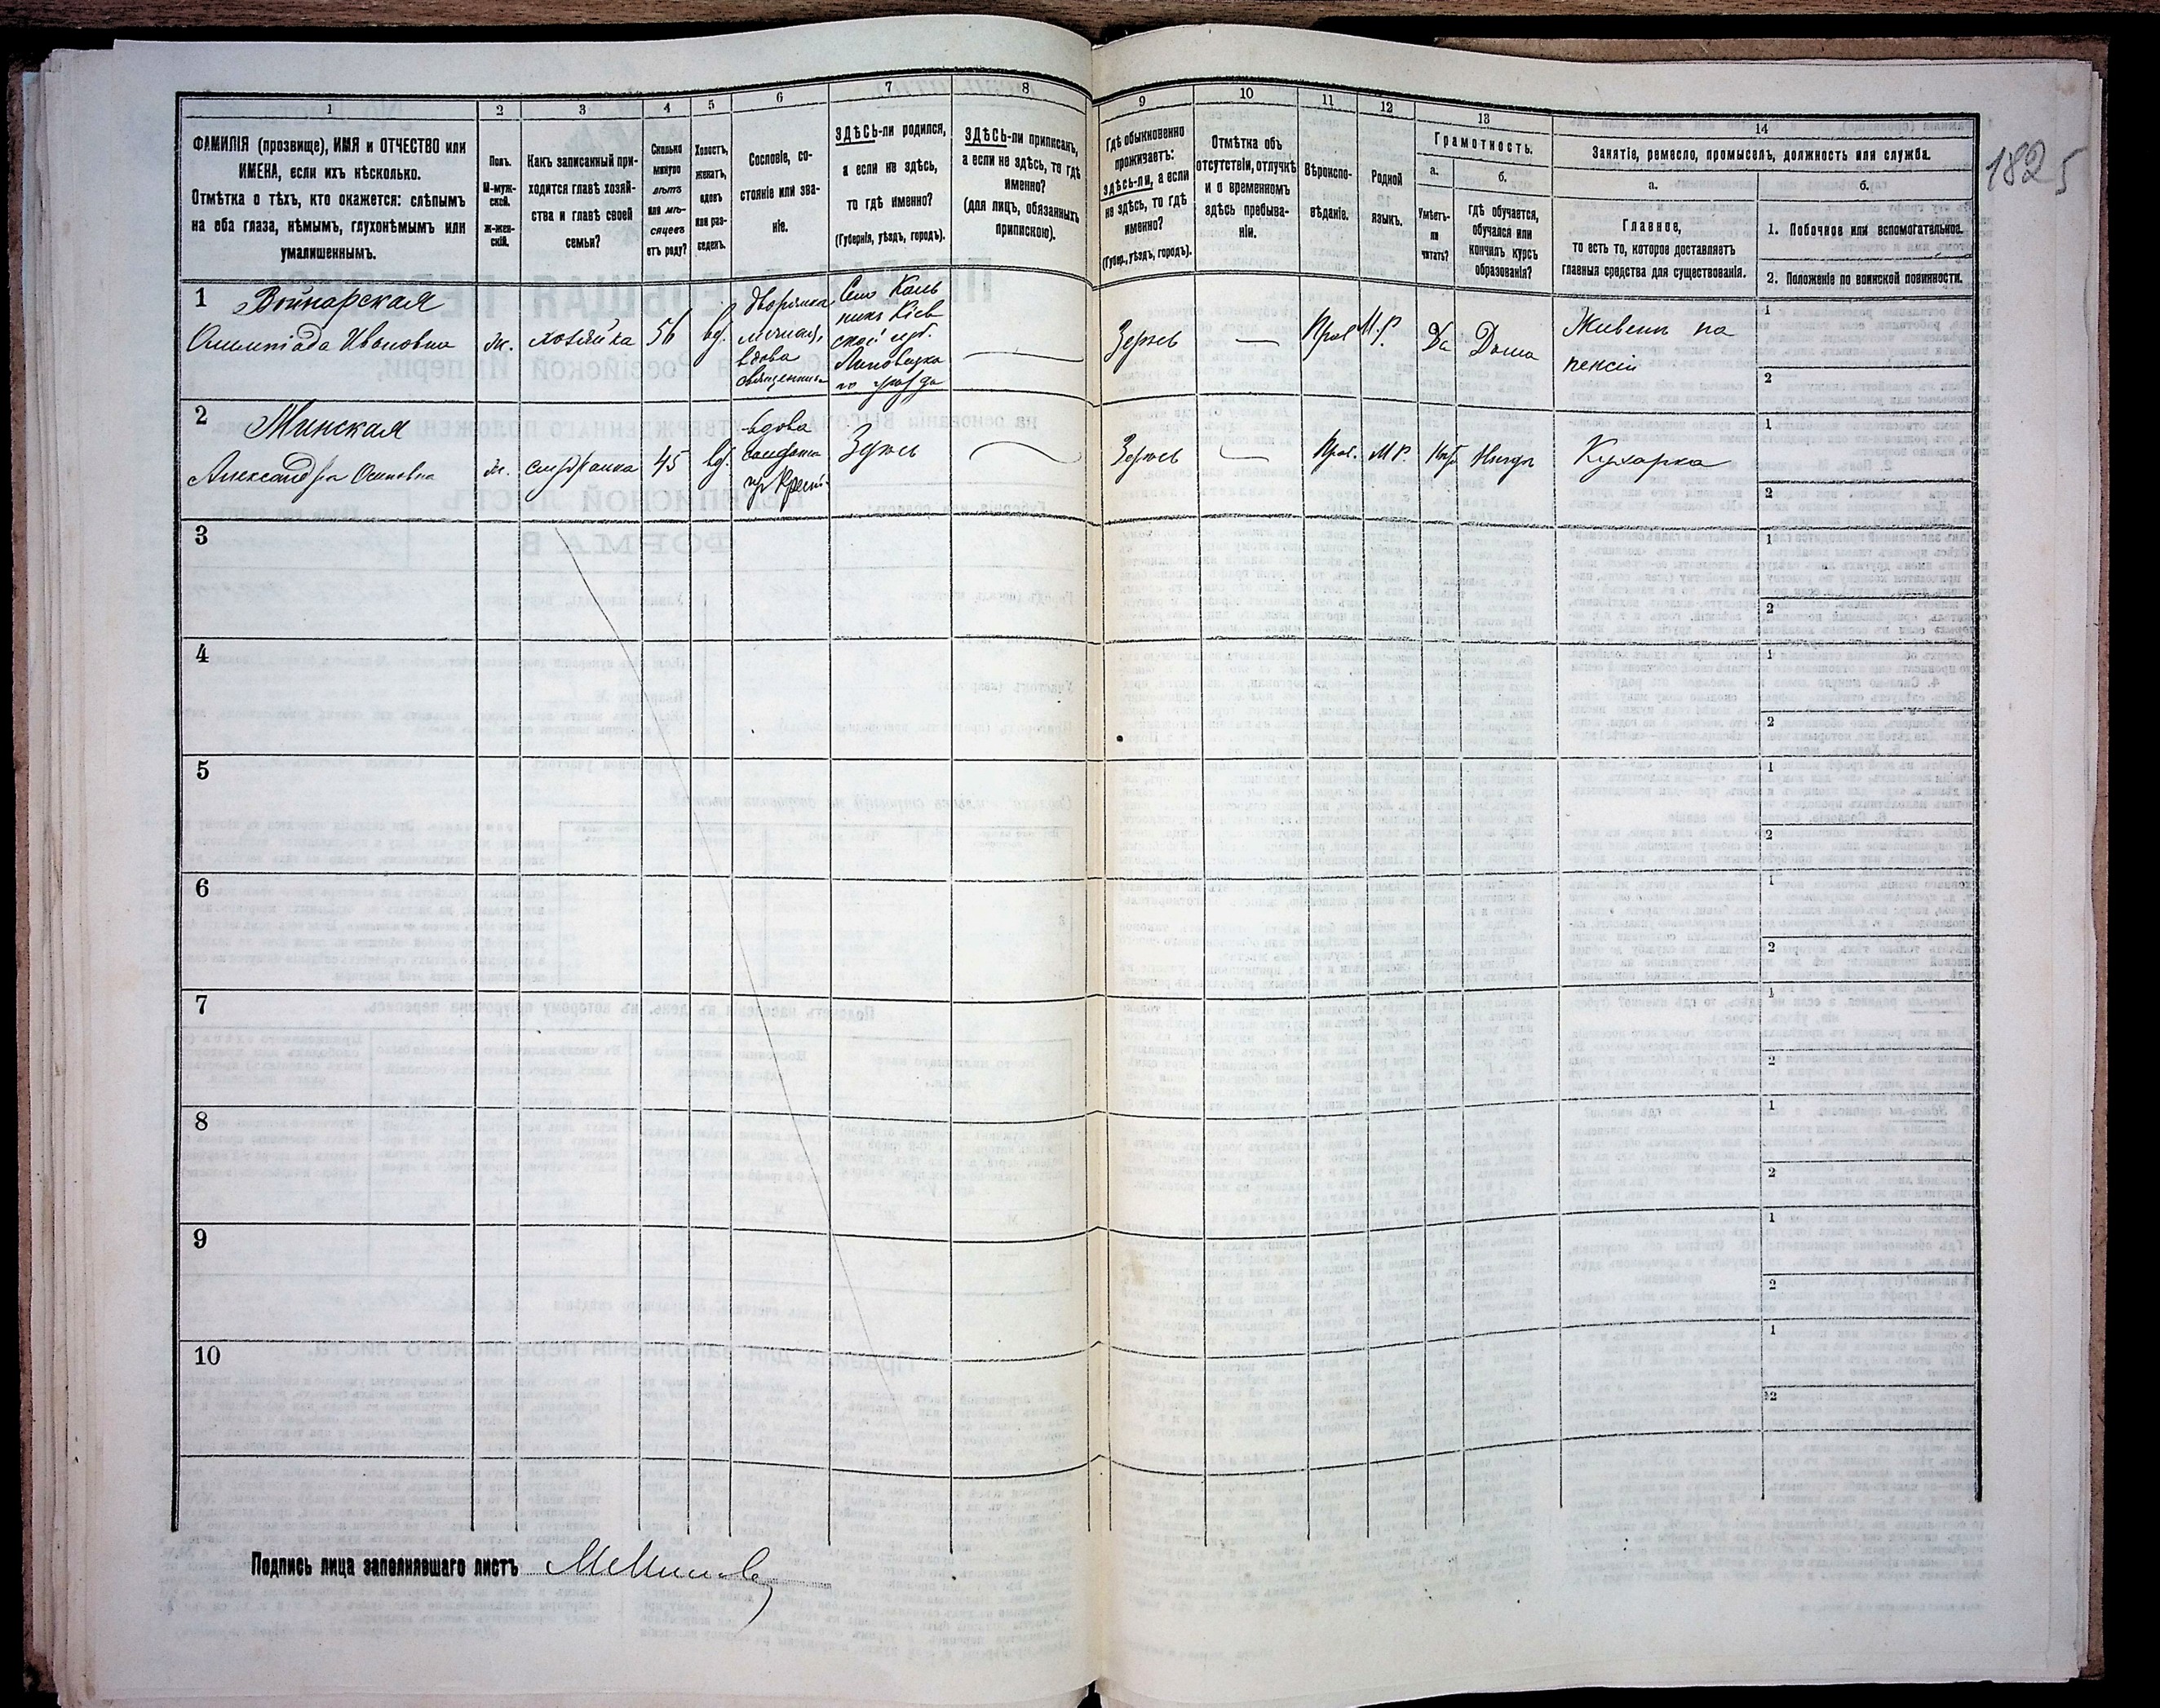 1825
1 2 3 4 5 6 7 8 9 10 11 12 13 14
ФАМИЛІЯ (прозвище), ИМЯ и ОТЧЕСТВО или
ИМЕНА, если ихъ нѣсколько.
Отмѣтка о тѣхъ, кто окажется: слѣпымъ
на оба глаза, нѣмымъ, глухонѣмымъ или
умалишеннымъ.
Полъ.
М-муж-
ской.
ж-жен-
скій.
Какъ записанный при-
ходится главѣ хозяй-
ства и главѣ своей
семьи?
Сколько
минуло
лѣтъ
или мѣ-
сяцевъ
отъ роду?
Холостъ,
женатъ,
вдовъ
или раз-
веденъ.
Сословіе, со-
стояніе или зва-
ніе.
ЗДѢСЬ-ли родился,
а если не здѣсь,
то гдѣ именно?
(Губернія, уѣздъ, городъ).
ЗДѢСЬ-ли приписанъ,
а если не здѣсь, то гдѣ
именно?
(для лицъ, обязанныхъ
припискою).
Гдѣ обыкновенно
проживаетъ:
здѣсь-ли, а если
не здѣсь, то гдѣ
именно?
(Губер., уѣздъ, городъ).
Отмѣтка объ
отсутствіи, отлучкѣ
и о временномъ
здѣсь пребыва-
ніи.
Вѣроиспо-
вѣданіе.
Родной
языкъ.
Грамотность.
а.
Умѣетъ-
ли
читать?
б.
гдѣ обучается,
обучался или
кончилъ курсъ
образованія?
Занятіе, ремесло, промыселъ, должность или служба.
а.
Главное,
то есть то, которое доставляетъ
главныя средства для существованія.
б.
1. Побочное или вспомогательное.
2. Положеніе по воинской повинности.
1
Войнарская
Олимпіада Ивановна
ж.
хозяйка
56
вд.
дворянка
вдова
Село Каль
никъ Кіев
ской губ.
Липовецка
го уѣзда
Здѣсь
Прав
М.Р.
Да
Дома
Живетъ на
пенсіи
1
2
2
Минская
Александра Осиповна
ж.
45
вд.
вдова
Здѣсь
Здѣсь
Прав.
М Р.
Нигдѣ
Кухарка
1
2
3
1
2
4
1
2
5
1
2
6
1
2
7
1
2
8
1
2
9
1
2
10
1
2
Подпись лица заполнявшаго листъ